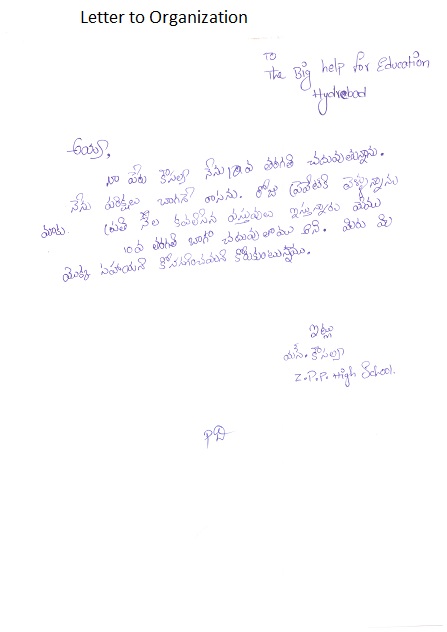 Letter to Organization
To
The Big help for Education
Hydrebad
అయ్యా,
నా పేరు కౌసల్యా నేను 10వ తరగతి చదువుతున్నాను.
నేను పరీక్షలు బాగానే రాసాను. రోజు ప్రైవేటుకి వెళ్తున్నాను
మాకు ప్రతి నేల కావలసిన వస్తువులు ఇస్తున్నారు మేము
10వ తరగతి బాగా చదువుతాము అని. మీరు మీ
యొక్క సహాయాని కోనసాగించమని కోరుకుంటున్నాము.
ఇట్లు
యస్. కౌసల్యా
Z.P.P. High School.